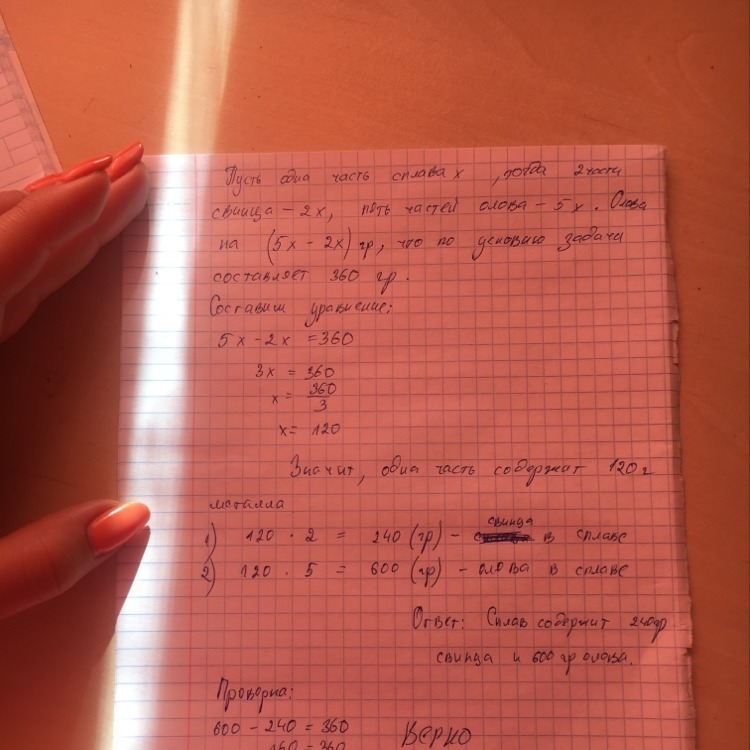 Пусть одна часть сплава x, тогда 2 части
свинца - 2x, пять частей олова - 5x. Олова
на (5x - 2x) гр, что по условию задачи
составляет 360 гр.
Составим уравнение:
5x - 2x = 360
3x = 360
x = 360/3
x = 120
Значит, одна часть содержит 120 г
металла
1) 120 · 2 = 240 (гр) - свинца в сплаве
2) 120 · 5 = 600 (гр) - олова в сплаве
Ответ: Сплав содержит 240 гр
свинца и 600 гр олова.
Проверка:
600 - 240 = 360
= 360 Верно